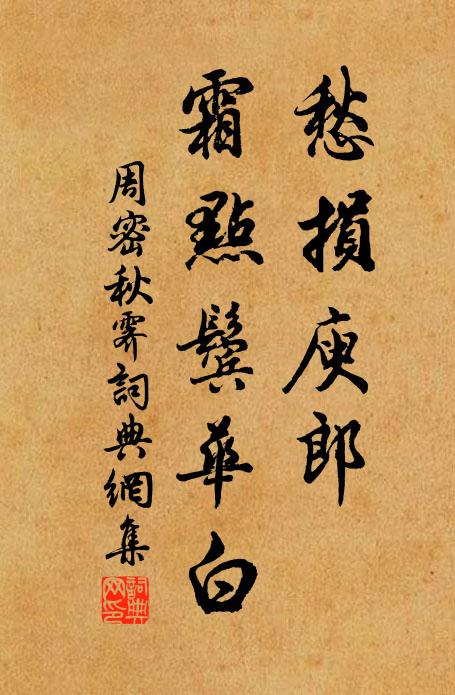 愁損庾郎
霜點鬢華白
周密秋霽詞典網集
詞典網印